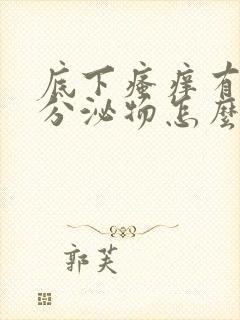 底下瘙痒有
分泌物怎麼
郭芙